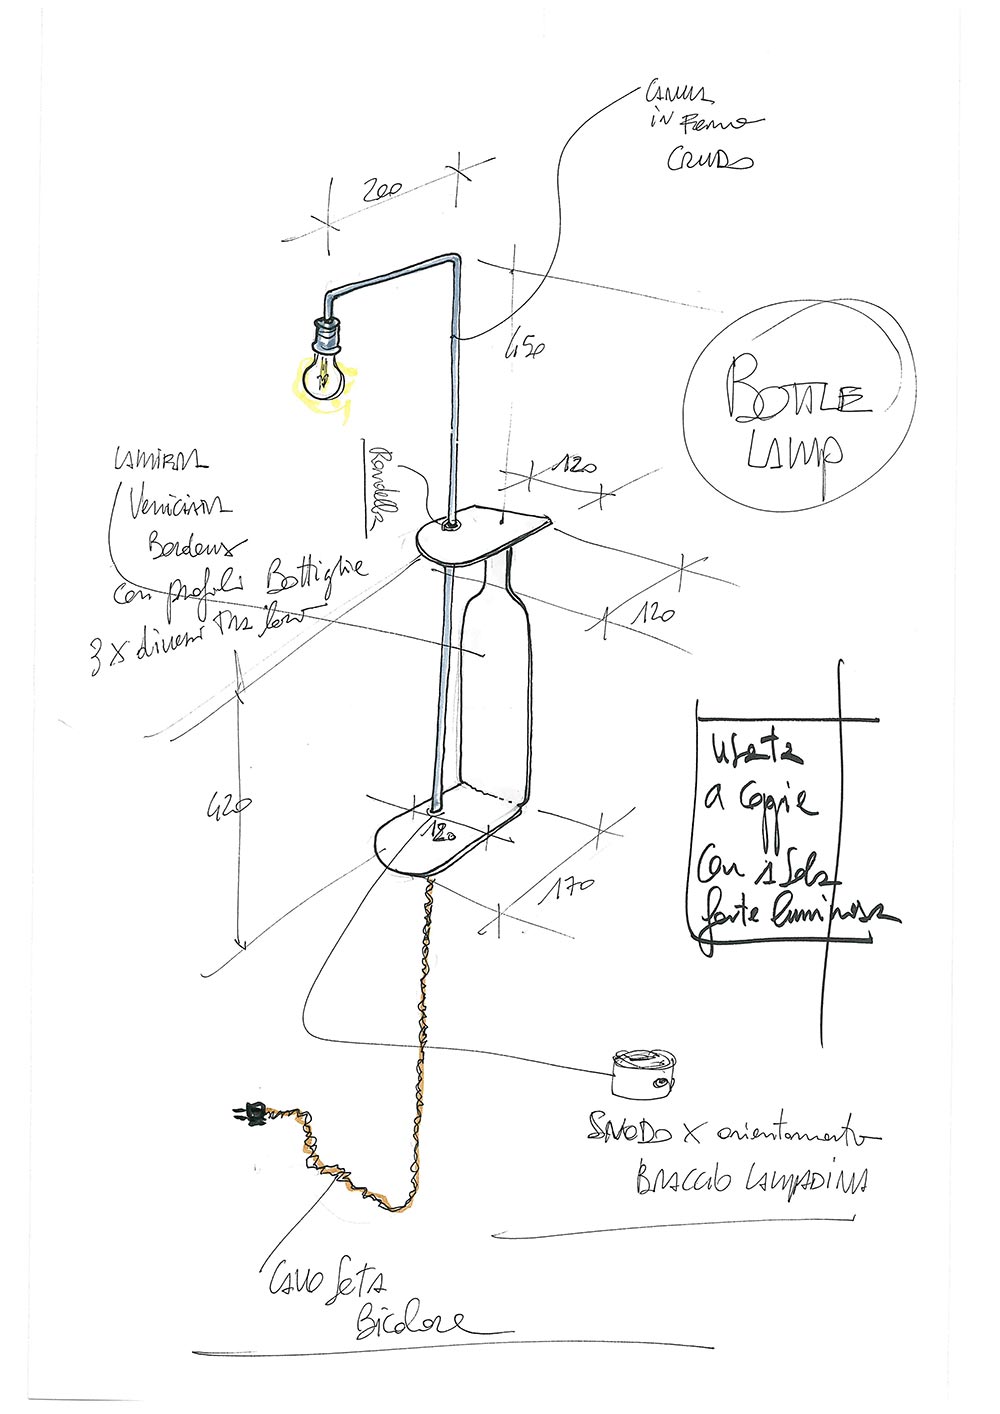 CANNA
in Ferro
CRUDO
200
450
BOTTLE
LAMP
120
Rondella
LAMIERA
Verniciata
Bordeaux
con profili Bottiglie
3 x diversi tra loro
120
420
usata
a coppie
con 1 sola
fonte luminosa
120
170
SNODO X orientamento
BRACCIO LAMPADINA
CAVO SETA
Bicolore